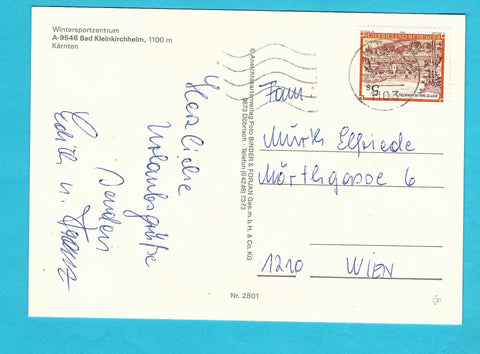 Wintersportzentrum
A-9546 Bad Kleinkirchheim, 1100 m
Kärnten
Herzliche
Urlaubsgrüße
senden
Edith u. Franz
© Ansichtskartenverlag Foto BINDER & FORJAN Ges. m. b. H. & Co. KG
9873 Döbriach - Telefon (04246) 7373
Nr. 2801
Fam.
Mürk Elfriede
Mörthgasse 6
1210 WIEN
1103
S5